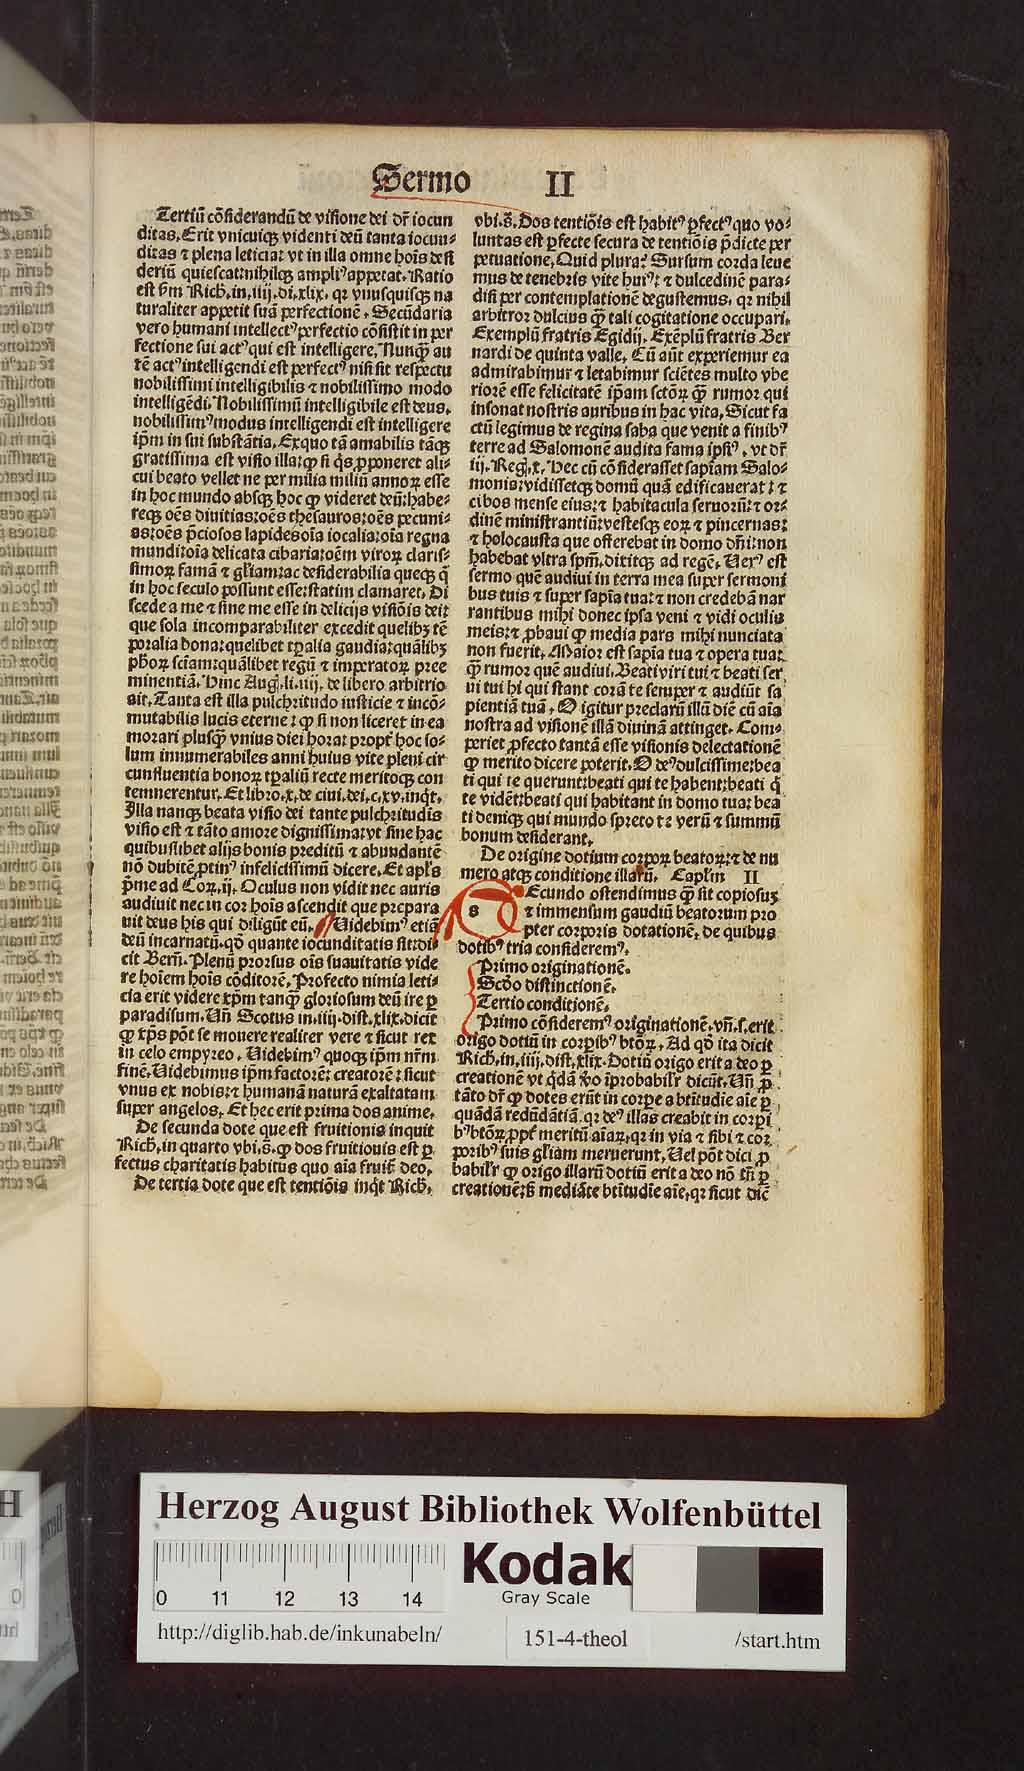 Sermo II
Tertiū cōsiderandū de visione dei dr̄ iocun
ditas. Erit vnicuiqꝫ videnti deū tanta iocun⸗
ditas ⁊ plena leticia: vt in illa omne hoīs desi
deriū quiescat: nihilqꝫ ampliꝰ appetat. Ratio
est ẜm Rich. in .iiij. di. xlix. qꝛ vnusquisqꝫ na
turaliter appetit suā perfectionē. Secūdaria
vero humani intellectꝰ perfectio cōsistit in per
fectione sui actꝰ qui est intelligere. Nunqꝫ̄ au
tē actꝰ intelligendi est perfectꝰ nisi sit respectu
nobilissimi intelligibilis ⁊ nobilissimo modo
intelligēdi. Nobilissimū intelligibile est deus.
nobilissimꝰ modus intelligendi est intelligere
ip̄m in sui substātia. Ex quo tā amabilis tāqꝫ
gratissima est visio illa: ꝙ si q̇s ꝓponeret ali⸗
cui beato vellet ne per milia miliū annoꝝ esse
in hoc mundo absqꝫ hoc ꝙ videret deū: habe⸗
reqꝫ oēs diuitias: oēs thesauros: oēs pecuni⸗
as: oēs p̄ciosos lapides oīa iocalia: oīa regna
mundi: oīa delicata cibaria: oēm viroꝝ claris⸗
simoꝝ famā ⁊ gl̄iam: ac desiderabilia queqꝫ q̄
in hoc seculo possunt esse: statim clamaret. Di
scede a me ⁊ sine me esse in delicijs visiōis dei:
que sola incomparabiliter excedit quelibꝫ tē
poralia bona: quelibet tp̄alia gaudia: quālibꝫ
ph̄oꝝ sciam: quālibet regū ⁊ imperatoꝝ pree
minentiā. Hinc Aug. li. iij. de libero arbitrio
ait. Tanta est illa pulchritudo iusticie ⁊ incō⸗
mutabilis lucis eterne: ꝙ si non liceret in ea
morari plusqꝫ̄ vnius diei hora: propt̄ hoc so⸗
lum innumerabiles anni huius vite pleni cir
cunfluentia bonoꝝ tp̄aliū recte meritoqꝫ con
temnerentur. Et libro. x. de ciui. dei. c. xv. inq̇t.
Illa nanqꝫ beata visio dei tante pulchritudis
visio est ⁊ tāto amore dignissima: vt sine hac
quibuslibet alijs bonis preditū ⁊ abundantē
nō dubitē ptinꝰ infelicissimū dicere. Et apl's
p̄me ad Coꝝ. ij. Oculus non vidit nec auris
audiuit nec in cor hoīs ascendit que prepara
uit deus his qui diligūt eū. Videbimꝰ etiā
deū incarnatū. qd̄ quante iocunditatis sit: di⸗
cit Bern̄. Plenū prorsus oīs suauitatis vide
re hoīem hoīs cōditorē. Profecto nimia leti⸗
cia erit videre xp̄m tanqꝫ̄ gloriosum deū ire ꝑ
paradisum. Vn̄ Scotus in. iiij. dist. xlix. dicit
ꝙ xp̄s pōt se mouere realiter vere ⁊ sicut rex
in celo empyreo. Videbimꝰ quoqꝫ ip̄m nr̄m
finē. Videbimus ip̄m factorē: creatorē: sicut
vnus ex nobis: ⁊ humanā naturā exaltatam
super angelos. Et hec erit prima dos anime.
De secunda dote que est fruitionis inquit
Rich. in quarto vbi. s̄. ꝙ dos fruitiouis est ꝑ
fectus charitatis habitus quo aīa fruit̄ deo.
De tertia dote que est tentiōis inq̇t Rich.
vbi. s̄. Dos tentiōis est habitꝰ ꝑfectꝰ quo vo⸗
luntas est ꝑfecte secura de tentiōis p̄dicte per
petuatione. Quid plura: Sursum corda leue
mus de tenebris vite huiꝰ: ⁊ dulcedinē para⸗
disi per contemplationē degustemus. qꝛ nihil
arbitror dulcius qꝫ̄ tali cogitatione occupari.
Exemplū fratris Egidij. Exēplū fratris Ber
nardi de quinta valle. Cū aūt experiemur ea
admirabimur ⁊ letabimur sciētes multo vbe
riorē esse felicitatē ip̄am sctōꝝ qꝫ̄ rumor qui
insonat nostris auribus in hac vita. Sicut fa
ctū legimus de regina saba que venit a finibꝰ
terre ad Salomonē audita fama ipsiꝰ. vt dr̄
iij. Reg. x. Hec cū cōsiderasset sapīam Salo⸗
monis: vidissetqꝫ domū quā edificauerat: ⁊
cibos mense eius: ⁊ habitacula seruorū: ⁊ or⸗
dinē ministrantiū: vestesqꝫ eoꝝ ⁊ pincernas:
⁊ holocausta que offerebat in domo dn̄i: non
habebat vltra spm̄. dixitqꝫ ad regē. Verꝰ est
sermo quē audiui in terra mea super sermoni
bus tuis ⁊ super sapīa tua: ⁊ non credebā nar
rantibus mihi donec ipsa veni ⁊ vidi oculis
meis: ⁊ ꝓbaui ꝙ media pars mihi nunciata
non fuerit. Maior est sapīa tua ⁊ opera tua:
qꝫ̄ rumor quē audiui. Beati viri tui ⁊ beati ser
ui tui hi qui stant corā te semper ⁊ audiūt sa
pientiā tuā. O igitur preclarū illū diē cū aīa
nostra ad visionē illā diuinā attinget. Com⸗
periet ꝓfecto tantā esse visionis delectationē
ꝙ merito dicere poterit. O deꝰ dulcissime: bea
ti qui te querunt: beati qui te habent: beati q̇
te vidēt: beati qui habitant in domo tua: bea
ti deniqꝫ qui mundo spreto te verū ⁊ summū
bonum desiderant.
De origine dotium corꝑoꝝ beatoꝝ: ⁊ de nu
mero atqꝫ conditione illarū. Capl'm II
s Ecundo ostendimus qꝫ̄ sit copiosuꝫ
⁊ immensum gaudiū beatorum pro
pter corporis dotationē. de quibus
dotibꝰ tria consideremꝰ.
Primo originationē.
Scd̄o distinctionē.
Tertio conditionē.
Primo cōsideremꝰ originationē. vn̄. s. erit
origo dotiū in corꝑibꝰ btōꝝ. Ad qd̄ ita dicit
Rich. in. iiij. dist. xlix. Dotiū origo erit a deo ꝑ
creationē vt q̇dā v̄o īprobabil'r dicūt. Vn̄ ꝓ
tāto dr̄ ꝙ dotes erūt in corꝑe a btītudīe aīe ꝑ
quādā redūdātiā. qꝛ deꝰ illas creabit in corꝑi
bꝰ btōꝝ ꝓpt̄ meritū aīaꝝ. qꝛ in via ⁊ sibi ⁊ cor
poribꝰ suis gl̄iam meruerunt. Vel pōt dici ꝓ
babil'r ꝙ origo illarū dotiū erit a deo nō tn̄ ꝑ
creationē: s̄ mediāte btītudīe aīe. qꝛ sicut dic̄
Herzog August Bibliothek Wolfenbüttel
Kodak
Gray Scale
0 11 12 13 14
http://diglib.hab.de/inkunabeln/ 151-4-theol /start.htm